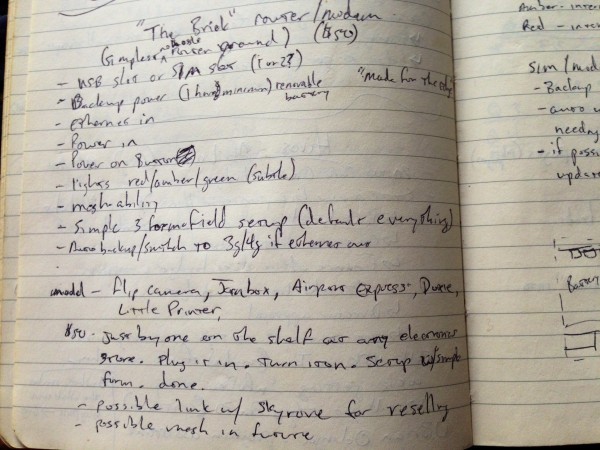 "The Brick" router/modem
(simplest no hassle router around) ($50)
- USB slot or SIM slot (1 or 2?)
- Backup power (1 hour minimum) renovable battery
"Made for the edge"
- ethernet in
- Power in
- Power on Button
- lights red/amber/green (subtle)
- meshability
- Simple 3 form field setup (default everything)
- Auto backup/switch to 3g/4g if ethernet out
model - flip camera, Jambox, Airport Express,
Little Printer,
$50 - just buy one on the shelf at any electronics
store. Plug it in. Turn it on. Setup w/ simple
form. done.
- possible link w/ skyrove for reselling
- possible mesh in future
Amber - inter
Red - inter
SIM/mod
- Backup
- auto u
needing
- if possi
update
Battery